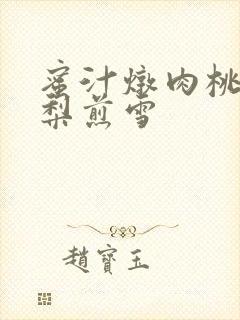 蜜汁燉肉桃
梨煎雪
趙寶玉